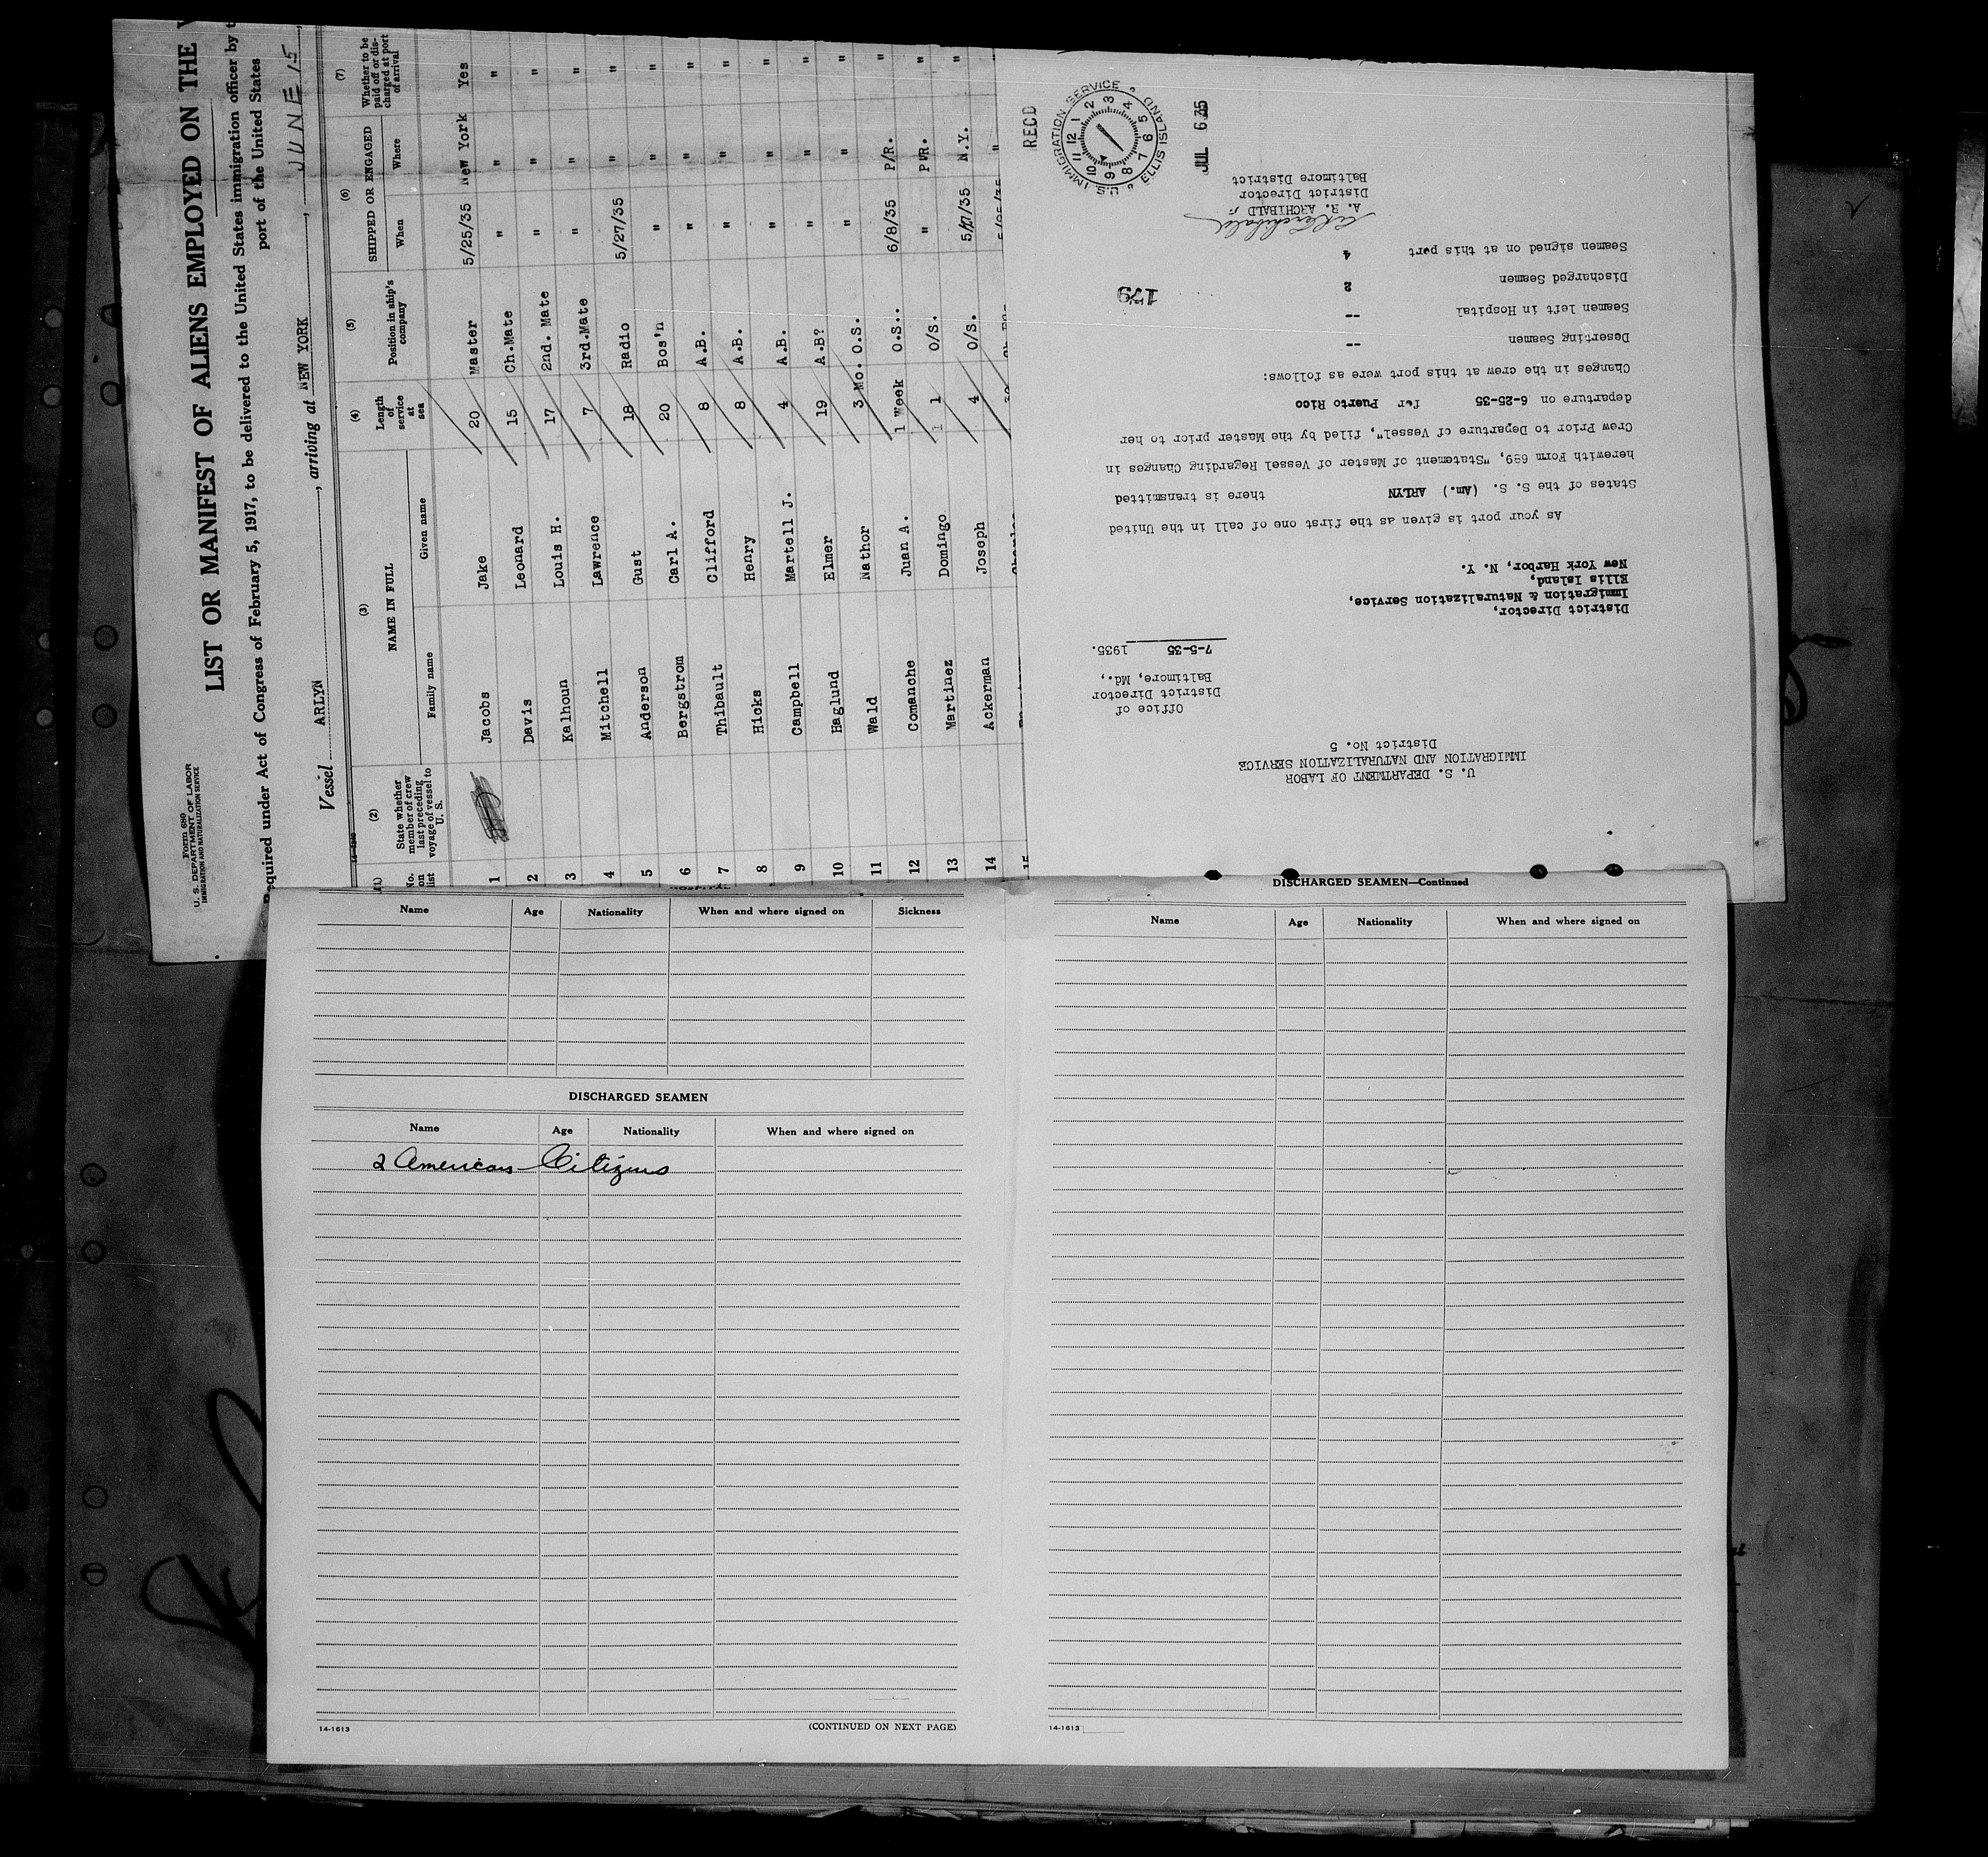 Form 680
U. S. DEPARTMENT OF LABOR
IMMIGRATION AND NATURALIZATION SERVICE
LIST OR MANIFEST OF ALIENS EMPLOYED ON THE
Required under Act of Congress of February 5, 1917, to be delivered to the United States immigration officer by
port of the United States
Vessel ARLYN, arriving at NEW YORK, JUNE 15,
(1) (2) (3) (4) (5) (6) (7)
No. on list State whether member of crew last preceding voyage of vessel to U. S. NAME IN FULL Length of service at sea Position in ship's company SHIPPED OR ENGAGED Whether to be paid off or discharged at port of arrival
Family name Given name When Where
1 Jacobs Jake 20 Master 5/25/35 New York Yes
2 Davis Leonard 15 Ch.Mate " " "
3 Kalhoun Louis H. 17 2nd. Mate " " "
4 Mitchell Lawrence 7 3rd.Mate " " "
5 Anderson Gust 18 Radio 5/27/35 " "
6 Bergstrom Carl A. 20 Bos'n " " "
7 Thibault Clifford 8 A.B. " " "
8 Hicks Henry 8 A.B. " " "
9 Campbell Martell J. 4 A.B. " " "
10 Haglund Elmer 19 A.B? " " "
11 Wald Nathor 3 Mo. O.S. " " "
12 Comanche Juan A. 1 week O.S.. 6/8/35 P/R. "
13 Martinez Domingo 1 O/S. " P/R. "
14 Ackerman Joseph 4 O/S. 5/27/35 N.Y. "
15
U. S. DEPARTMENT OF LABOR
IMMIGRATION AND NATURALIZATION SERVICE
District No. 5
Office of
District Director
Baltimore, Md.,
7-5-35 1935.
District Director,
Immigration & Naturalization Service,
Ellis Island,
New York Harbor, N. Y.
As your port is given as the first one of call in the United
States of the S. S. (Am.) ARLYN there is transmitted
herewith Form 689, "Statement of Master of Vessel Regarding Changes in
Crew Prior to Departure of Vessel", filed by the Master prior to her
departure on 6-25-35 for Puerto Rico
Changes in the crew at this port were as follows:
Deserting Seamen --
Seamen left in Hospital --
Discharged Seamen 2
179
Seamen signed on at this port 4
A. R. ARCHIBALD
District Director
Baltimore District
RECD
U.S. IMMIGRATION SERVICE ELLIS ISLAND
12 1 2 3 4 5 6 7 8 9 10 11
JUL 6 35
Name Age Nationality When and where signed on Sickness
DISCHARGED SEAMEN
Name Age Nationality When and where signed on
2 American Citizens
14-1613 (CONTINUED ON NEXT PAGE)
DISCHARGED SEAMEN—Continued
Name Age Nationality When and where signed on
14-1613